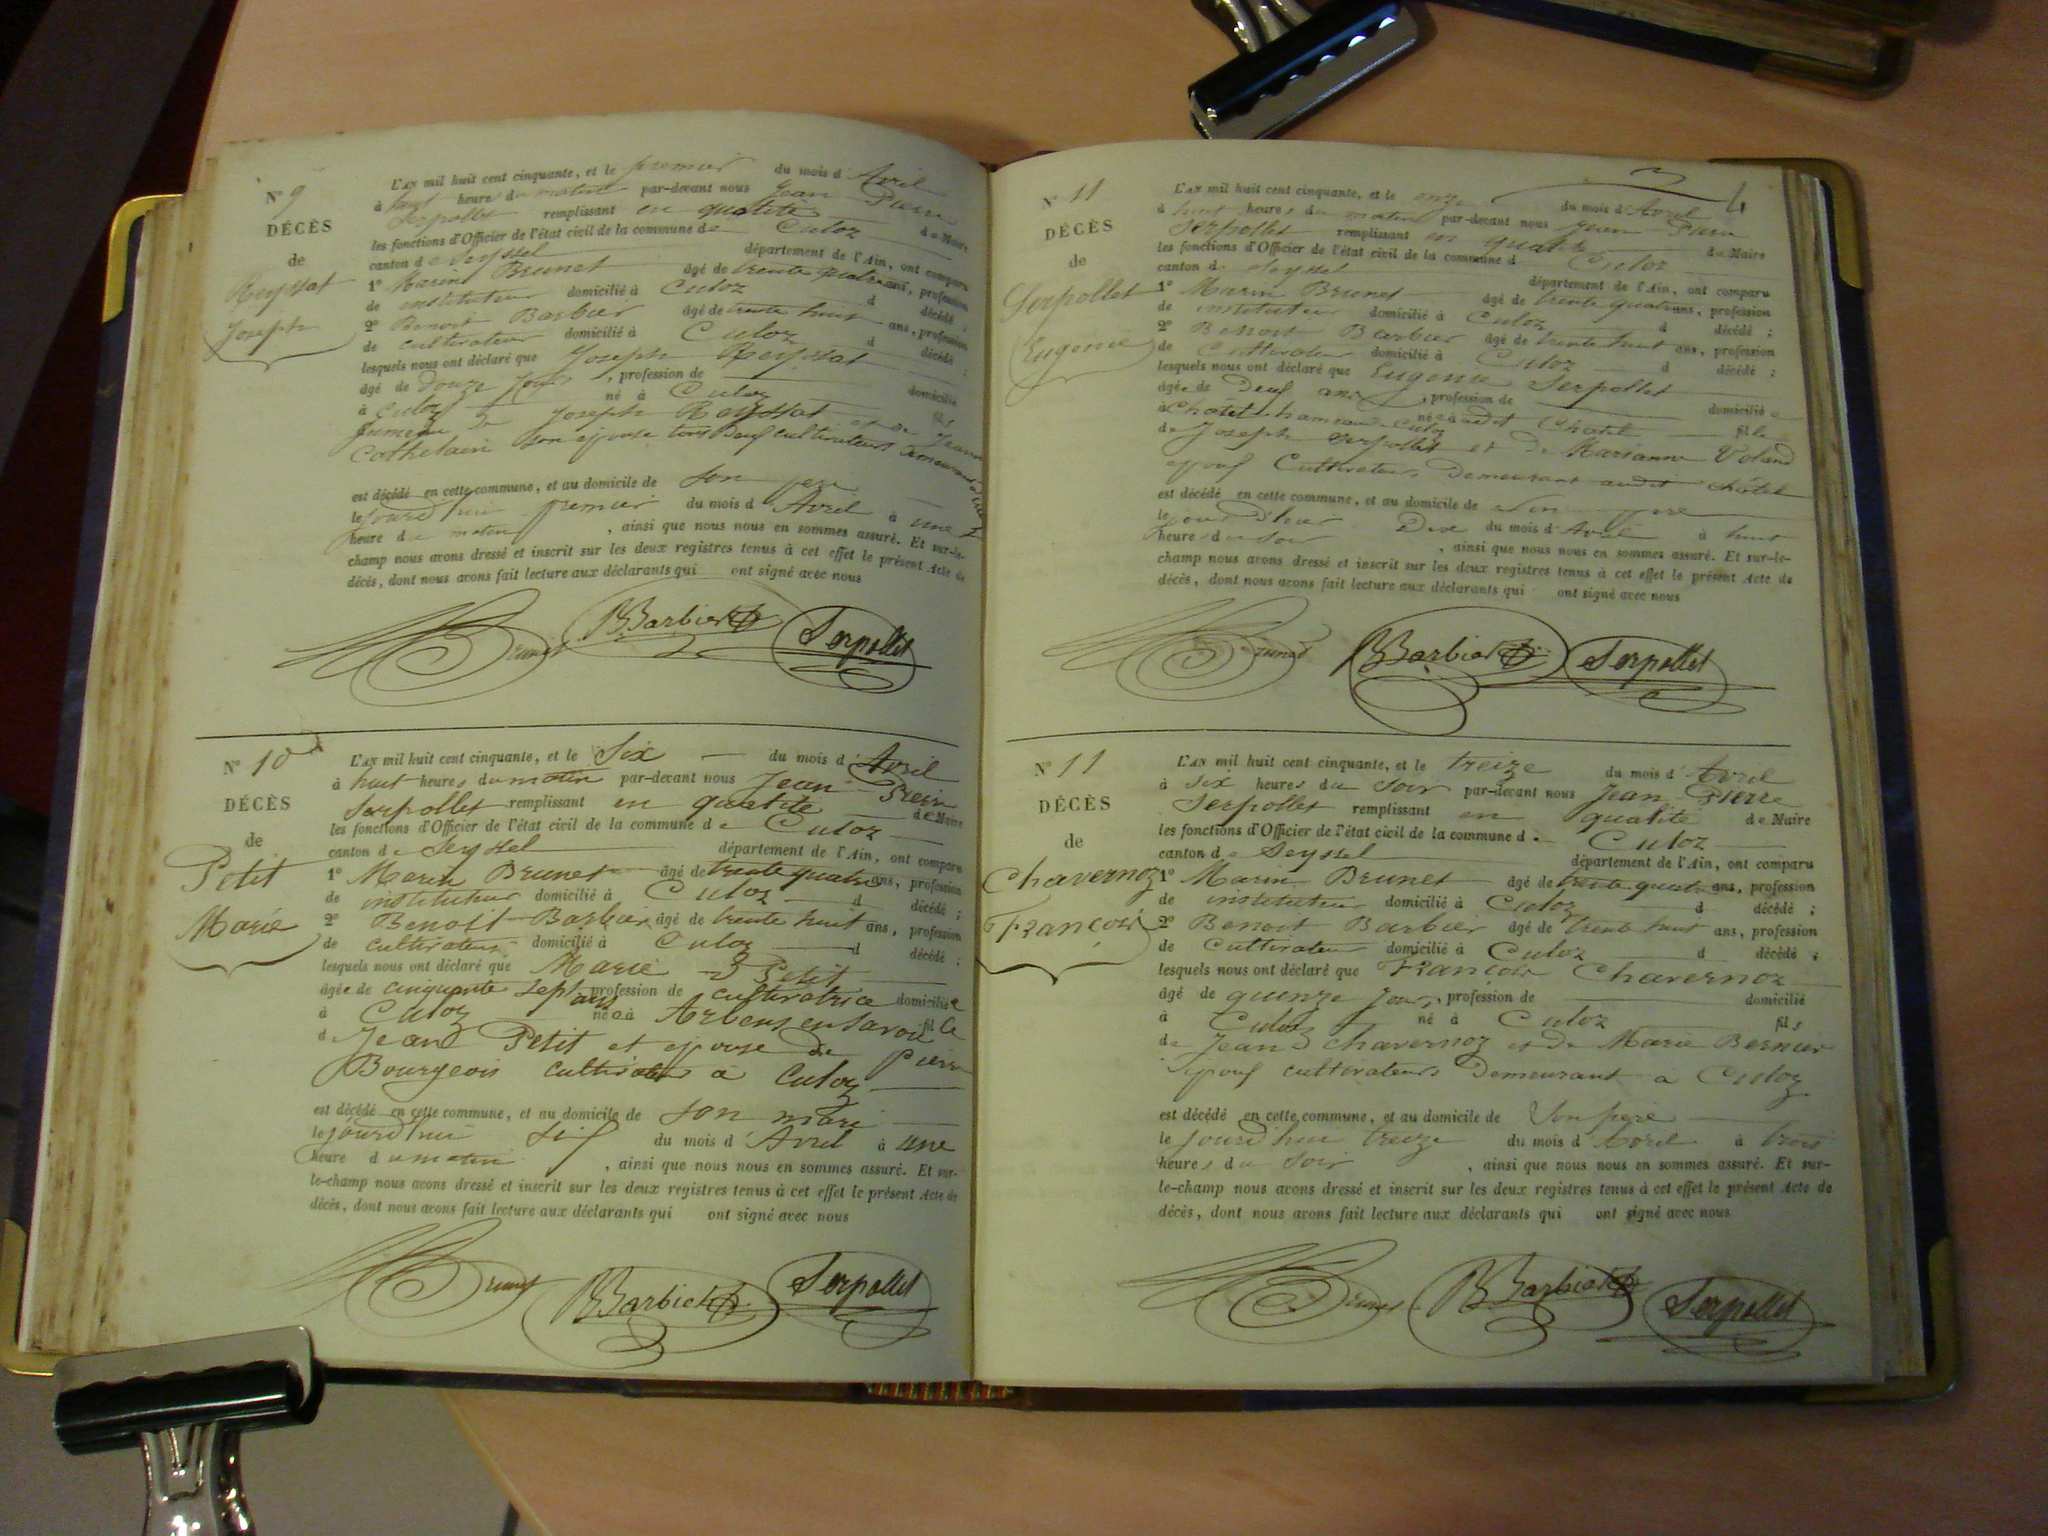 N° 9
DÉCÈS
de
Reyssat
Joseph
L'AN mil huit cent cinquante, et le premier du mois d'Avril
à huit heures du matin par-devant nous Jean Pierre
Serpollet remplissant en qualité de Maire
les fonctions d'Officier de l'état civil de la commune de Culoz
canton de Seyssel département de l'Ain, ont comparu
1° Marin Brunet âgé de trente quatre ans, profession
de instituteur domicilié à Culoz d décédé ;
2° Benoit Barbier âgé de trente huit ans, profession
de cultivateur domicilié à Culoz d décédé ;
lesquels nous ont déclaré que Joseph Reyssat
âgé de douze jours, profession de domicilié
à Culoz né à Culoz fils
jumeau de Joseph Reyssat et de Jeanne
Cathelain son épouse tous deux cultivateurs demeurant à Culoz
est décédé en cette commune, et au domicile de son père
le jourd'hui premier du mois d'Avril à une
heure du matin, ainsi que nous nous en sommes assuré. Et sur-le-
champ nous avons dressé et inscrit sur les deux registres tenus à cet effet le présent Acte de
décès, dont nous avons fait lecture aux déclarants qui ont signé avec nous
Brunet BBarbier Serpollet
N° 10
DÉCÈS
de
Petit
Marie
L'AN mil huit cent cinquante, et le Six du mois d'Avril
à huit heures du matin par-devant nous Jean Pierre
Serpollet remplissant en qualité de Maire
les fonctions d'Officier de l'état civil de la commune de Culoz
canton de Seyssel département de l'Ain, ont comparu
1° Marin Brunet âgé de trente quatre ans, profession
de instituteur domicilié à Culoz d décédé ;
2° Benoit Barbier âgé de trente huit ans, profession
de cultivateur domicilié à Culoz d décédé ;
lesquels nous ont déclaré que Marie Petit
âgée de cinquante sept ans profession de cultivatrice domiciliée
à Culoz née à Arbens en Savoie fille
de Jean Petit et epouse de Pierre
Bourgeois cultivateur à Culoz
est décédé en cette commune, et au domicile de son mari
le jourd'hui six du mois d'Avril à une
heure du matin, ainsi que nous nous en sommes assuré. Et sur-
le-champ nous avons dressé et inscrit sur les deux registres tenus à cet effet le présent Acte de
décès, dont nous avons fait lecture aux déclarants qui ont signé avec nous
Brunet BBarbier Serpollet
4
N° 11
DÉCÈS
de
Serpollet
Eugenie
L'AN mil huit cent cinquante, et le onze du mois d'Avril
à huit heures du matin par-devant nous Jean Pierre
Serpollet remplissant en qualité de Maire
les fonctions d'Officier de l'état civil de la commune d Culoz
canton de Seyssel département de l'Ain, ont comparu
1° Marin Brunet âgé de trente quatre ans, profession
de instituteur domicilié à Culoz d décédé ;
2° Benoit Barbier âgé de trente huit ans, profession
de Cultivateur domicilié à Culoz d décédé ;
lesquels nous ont déclaré que Eugenie Serpollet
âgée de Deux ans, profession de domiciliée
à Châtel hameau de Culoz née audit Chatel fille
de Joseph Serpollet et de Marianne Voland
epoux Cultivateurs Demeurant audit châtel
est décédé en cette commune, et au domicile de son père
le jour d'hier Dix du mois d'Avril à huit
heures du soir, ainsi que nous nous en sommes assuré. Et sur-le-
champ nous avons dressé et inscrit sur les deux registres tenus à cet effet le présent Acte de
décès, dont nous avons fait lecture aux déclarants qui ont signé avec nous
Brunet BBarbier Serpollet
N° 11
DÉCÈS
de
Chavernoz
François
L'AN mil huit cent cinquante, et le treize du mois d'Avril
à six heures du soir par-devant nous Jean Pierre
Serpollet remplissant en qualité de Maire
les fonctions d'Officier de l'état civil de la commune d Culoz
canton de Seyssel département de l'Ain, ont comparu
1° Marin Brunet âgé de trente quatre ans, profession
de instituteur domicilié à Culoz d décédé ;
2° Benoit Barbier âgé de trente huit ans, profession
de Cultivateur domicilié à Culoz d décédé ;
lesquels nous ont déclaré que François Chavernoz
âgé de quinze jours, profession de domicilié
à Culoz né à Culoz fils
de Jean Chavernoz et de Marie Bernier
epoux cultivateurs Demeurant à Culoz
est décédé en cette commune, et au domicile de Son père
le jourd'hui treize du mois d'Avril à trois
heures du soir, ainsi que nous nous en sommes assuré. Et sur-
le-champ nous avons dressé et inscrit sur les deux registres tenus à cet effet le présent Acte de
décès, dont nous avons fait lecture aux déclarants qui ont signé avec nous
Brunet BBarbier Serpollet